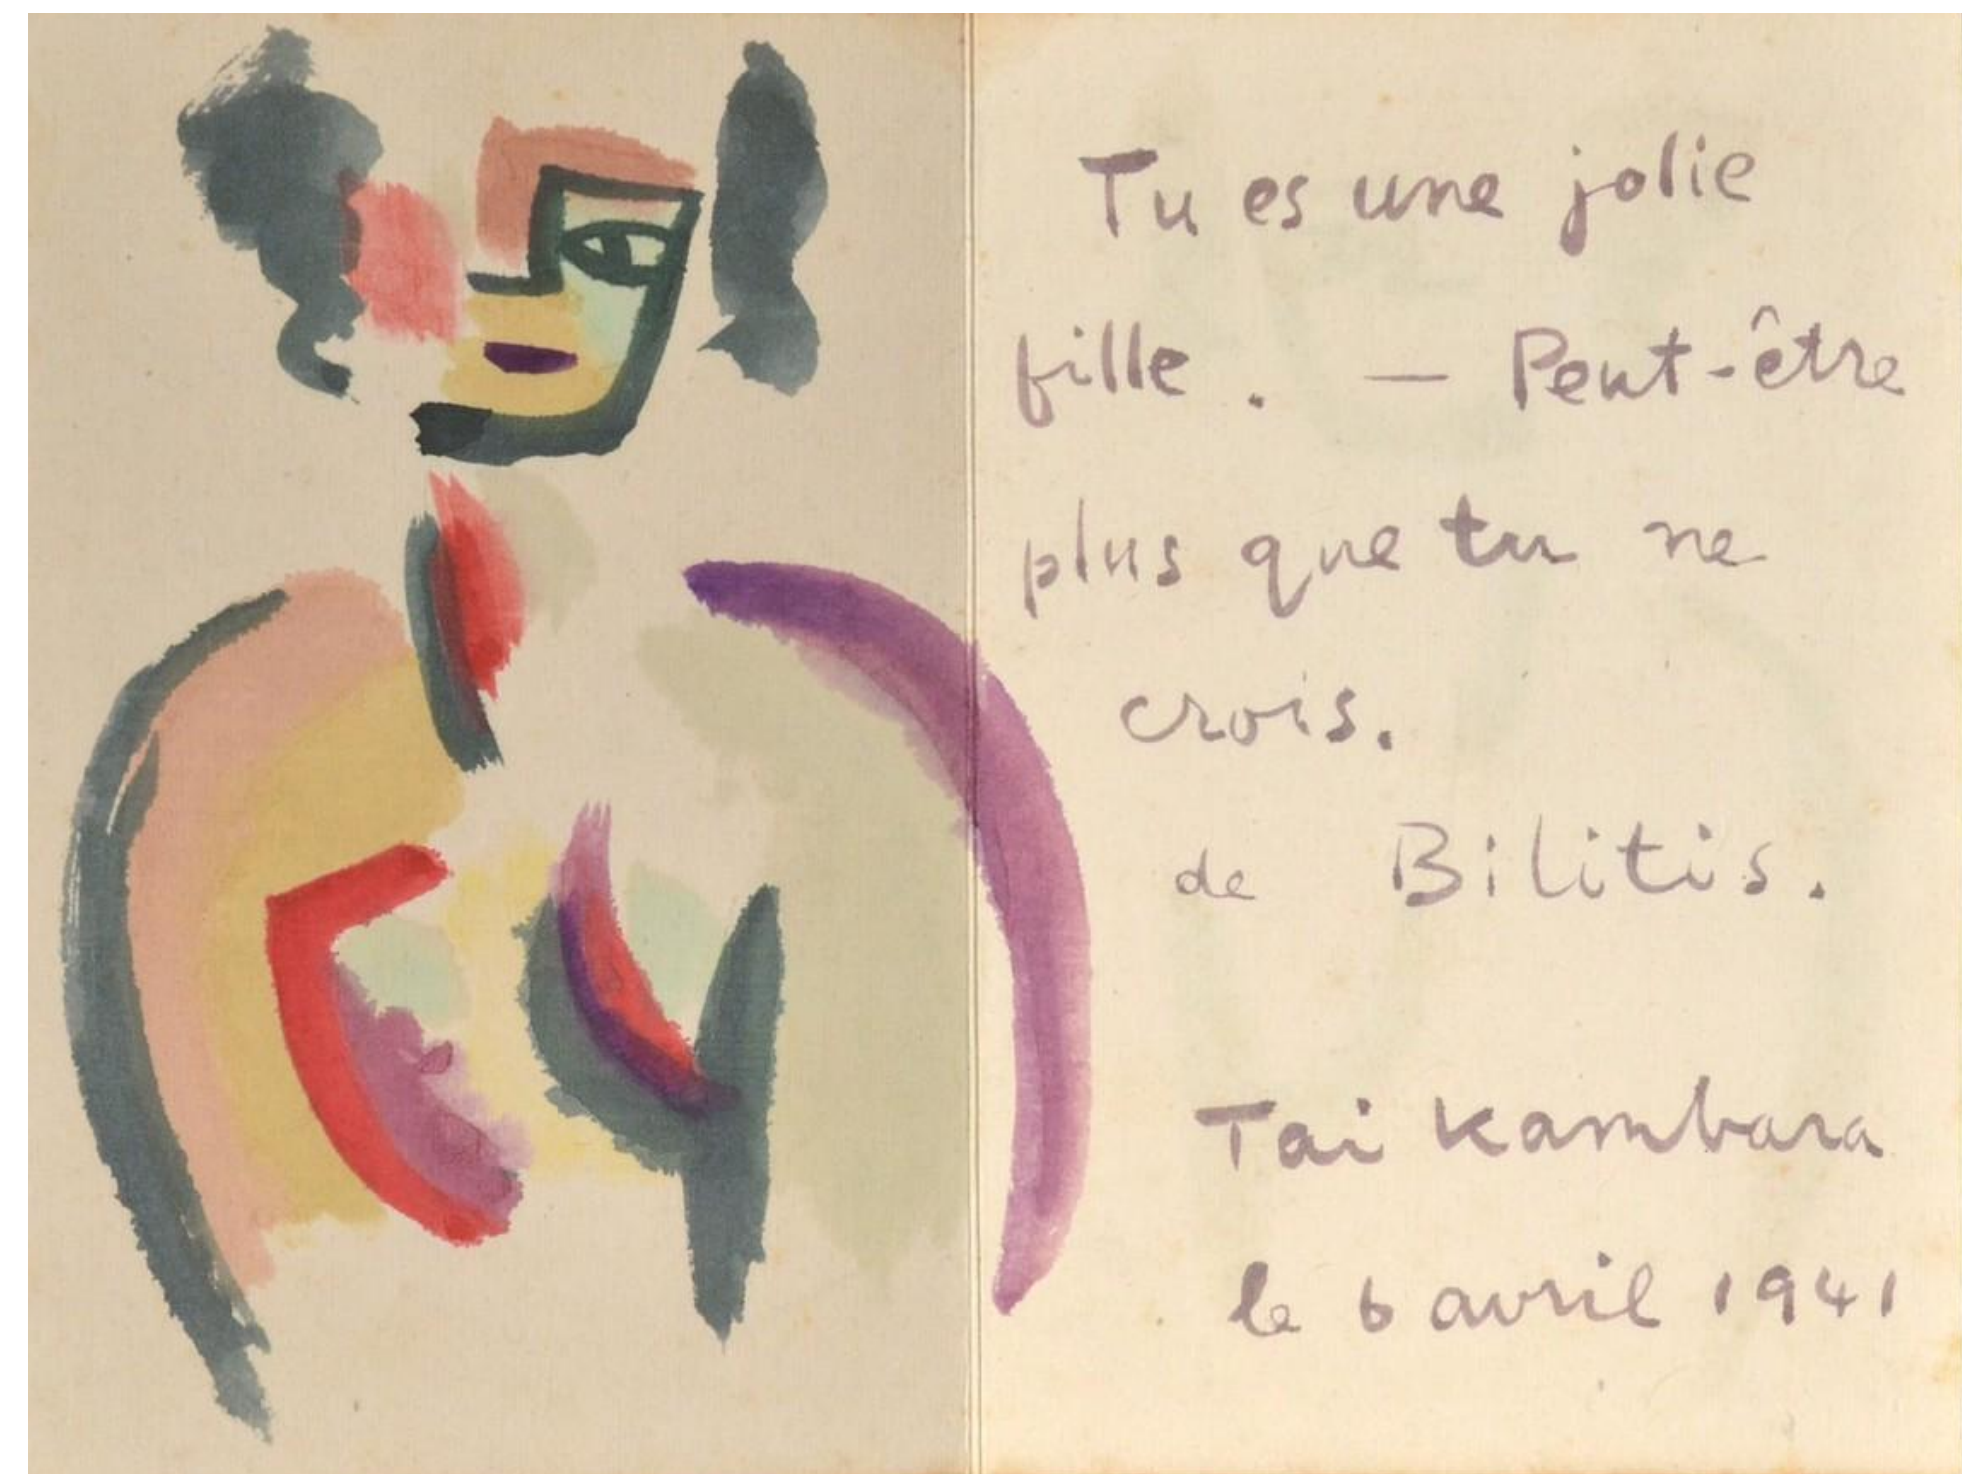 Tu es une jolie
fille. — Peut-être
plus que tu ne
crois.
de Bilitis.
Tai Kambara
le 6 avril 1941